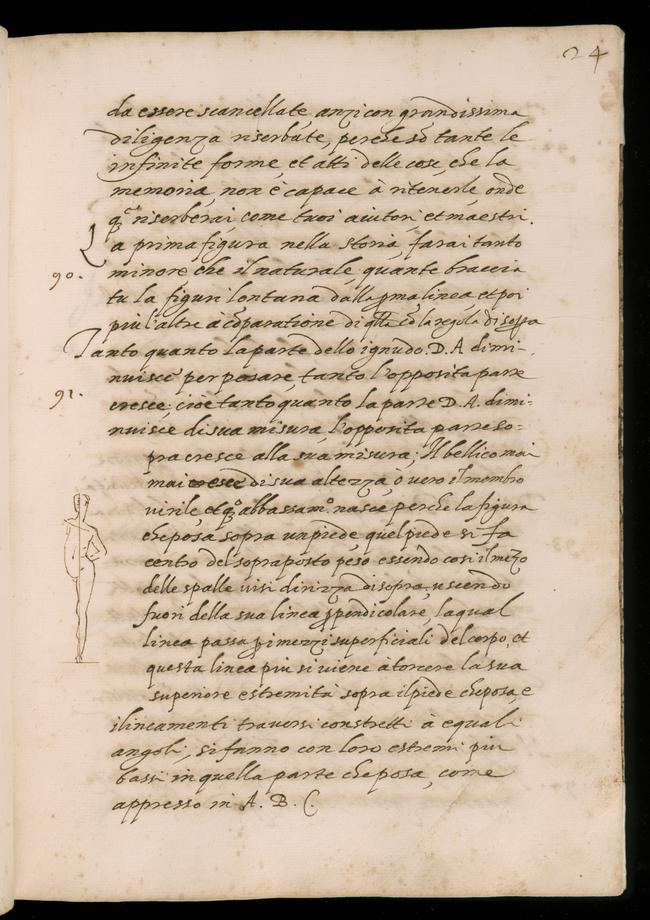 24
da essere scancellate, anzi con grandissima
diligenza riserbate, perche sō tante le
infinite forme, et atti delle cose, che la
memoria, non è capace à ritenerle, onde
q̄ riserberai, come tuoi aiutori et maestri.
La prima figura nella storia, farai tanto
90. minore che il naturale, quante braccia
tu la figuri lontana dalla p̱ma linea, et poi
più l'altre à cōparatione di q̄lla, cō la regola di sopra
Tanto quanto la parte dello ignudo. D. A dimi-
nuisce per posare, tanto l'opposita parte
91. cresce, cioè tanto quanto la parte D. A. dimi=
nuisce di sua misura, l'opposita parte so-
pra cresce alla sua misura; Il bellico mai
mai cresce di sua altezza, ò vero il membro
virile, et q̄o abbassam.o nasce perche la figura
che posa sopra un piede, quel piede si fa
centro del sopraposto peso essendo così il mezo
delle spalle visi dirizza disopra, uscendo
fuori della sua linea p̱pendicolare, la qual
linea passa p̱ i mezzi superficiali del corpo, et
questa linea più si viene à torcere la sua
superiore estremità sopra il piede che posa, e
i lineamenti traversi constretti à equali
angoli, si fanno con loro estremi più
bassi in quella parte che posa, come
appresso in A. B. C.